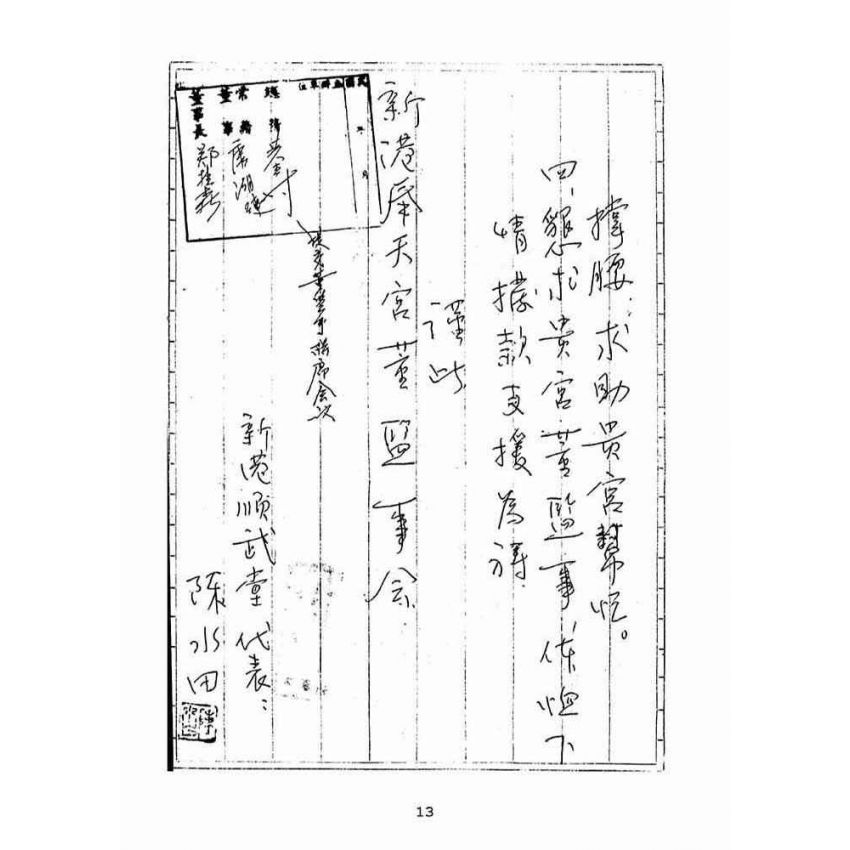 撐腰，求助貴宮幫忙。
四、懇求貴宮董監事，体恤下
情撥款支援為禱
謹此
新港奉天宮董監事会
提交董監事聯席会次
新港順武堂代表：
陳水田
董事長
常務董事
總幹
年 月
13